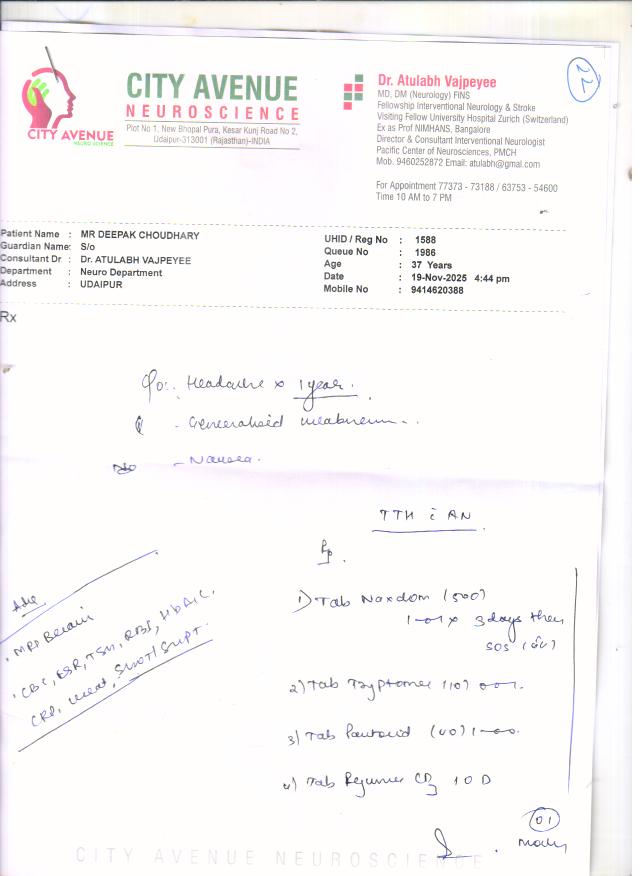 CITY AVENUE
NEURO SCIENCE
CITY AVENUE
NEUROSCIENCE
Plot No 1, New Bhopal Pura, Kesar Kunj Road No 2,
Udaipur-313001 (Rajasthan)-INDIA
Dr. Atulabh Vajpeyee
MD, DM (Neurology) FiNS
Fellowship Interventional Neurology & Stroke
Visiting Fellow University Hospital Zurich (Switzerland)
Ex as Prof NIMHANS, Bangalore
Director & Consultant Interventional Neurologist
Pacific Center of Neurosciences, PMCH
Mob. 9460252872 Email: atulabh@gmal.com
For Appointment 77373 - 73188 / 63753 - 54600
Time 10 AM to 7 PM
Patient Name : MR DEEPAK CHOUDHARY
Guardian Name: S/o
Consultant Dr : Dr. ATULABH VAJPEYEE
Department : Neuro Department
Address : UDAIPUR
UHID / Reg No : 1588
Queue No : 1986
Age : 37 Years
Date : 19-Nov-2025 4:44 pm
Mobile No : 9414620388
Rx
Headache x 1 year.
- Generalised weakness
- Nausea.
TTH c AN
1) Tab Naxdom (500)
1-0-1 x 3 days then
SOS
2) Tab Tryptomer (10) 0-0-1.
3) Tab Pantocid (40) 1-0-0.
4) Tab Rejunex CD3 10 D
Adv
. MRI Brain
. CBC, ESR, TSH, RBS, HbA1C,
CRP, Urea, SGOT/SGPT.
01
CITY AVENUE NEUROSCIENCE